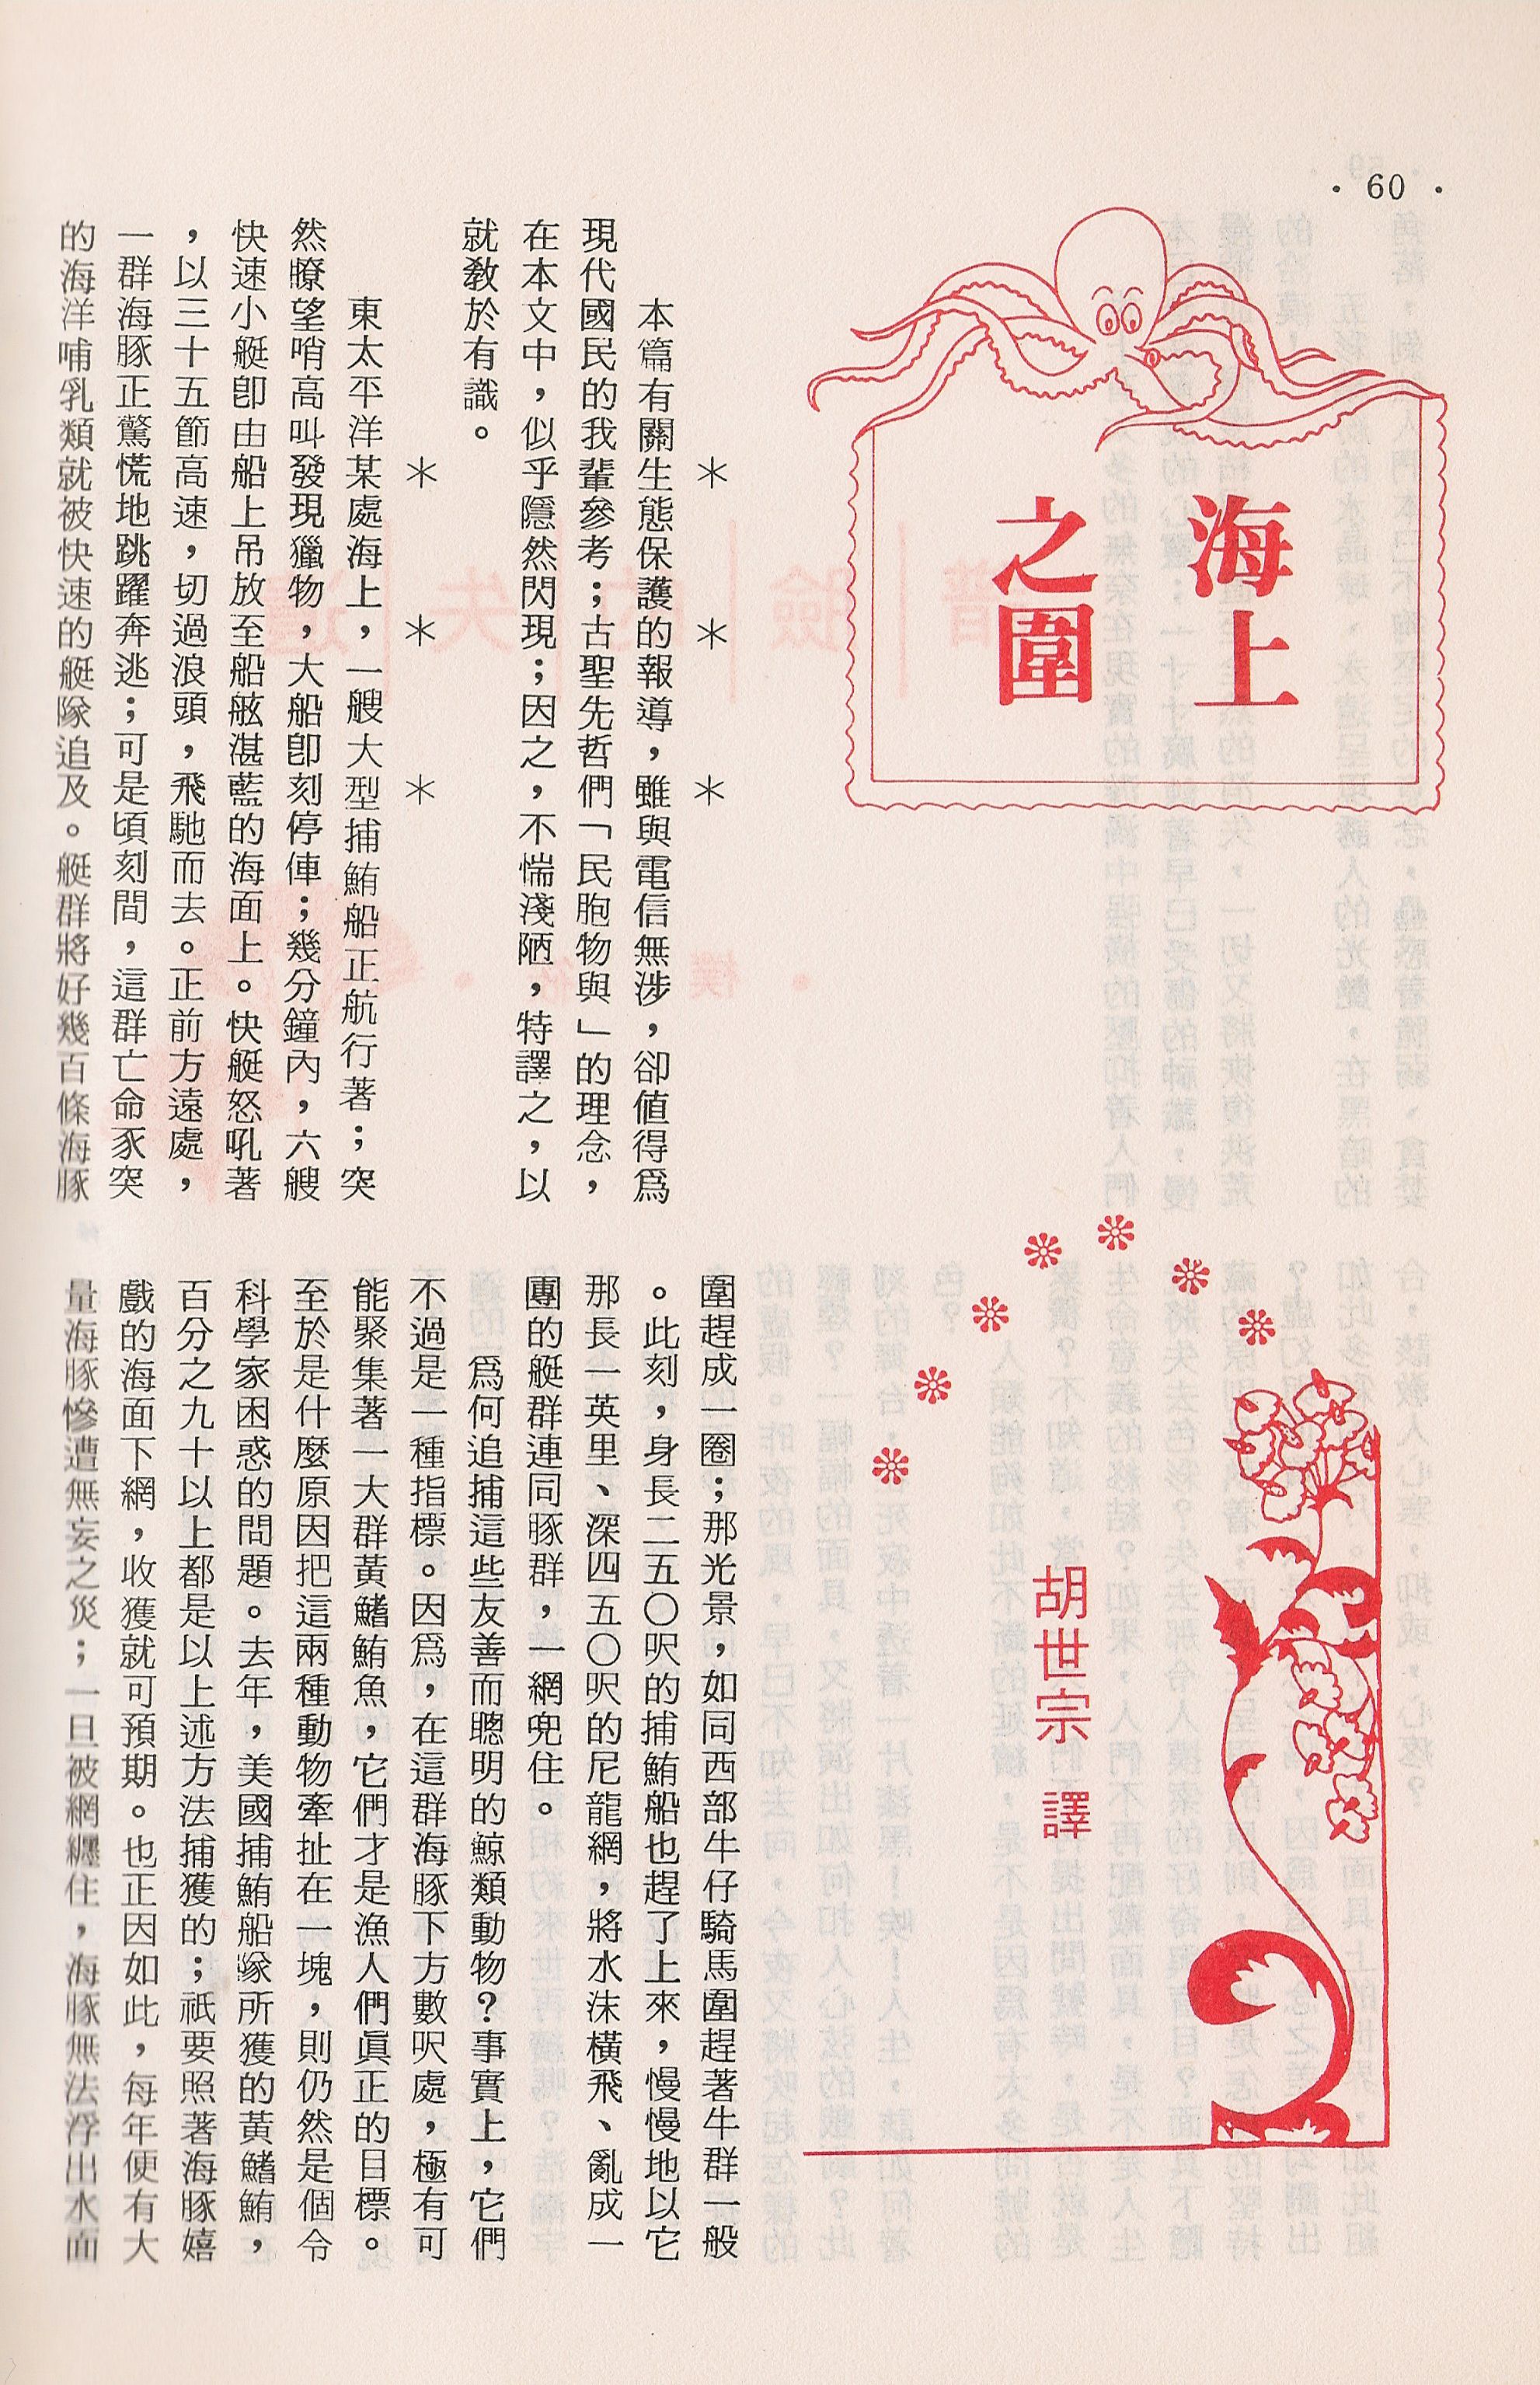 • 60 •
海上
之圍
胡世宗 譯
＊ ＊ ＊
本篇有關生態保護的報導，雖與電信無涉，卻值得爲
現代國民的我輩參考；古聖先哲們「民胞物與」的理念，
在本文中，似乎隱然閃現；因之，不惴淺陋，特譯之，以
就敎於有識。
＊ ＊ ＊
東太平洋某處海上，一艘大型捕鮪船正航行著；突
然瞭望哨高叫發現獵物，大船卽刻停俥；幾分鐘內，六艘
快速小艇卽由船上吊放至船舷湛藍的海面上。快艇怒吼著
，以三十五節高速，切過浪頭，飛馳而去。正前方遠處，
一群海豚正驚慌地跳躍奔逃；可是頃刻間，這群亡命豕突
的海洋哺乳類就被快速的艇隊追及。艇群將好幾百條海豚
圍趕成一圈；那光景，如同西部牛仔騎馬圍趕著牛群一般
。此刻，身長二五〇呎的捕鮪船也趕了上來，慢慢地以它
那長一英里、深四五〇呎的尼龍網，將水沫橫飛、亂成一
團的艇群連同豚群，一網兜住。
爲何追捕這些友善而聰明的鯨類動物？事實上，它們
不過是一種指標。因爲，在這群海豚下方數呎處，極有可
能聚集著一大群黃鰭鮪魚，它們才是漁人們眞正的目標。
至於是什麼原因把這兩種動物牽扯在一塊，則仍然是個令
科學家困惑的問題。去年，美國捕鮪船隊所獲的黃鰭鮪，
百分之九十以上都是以上述方法捕獲的；祇要照著海豚嬉
戲的海面下網，收獲就可預期。也正因如此，每年便有大
量海豚慘遭無妄之災；一旦被網纏住，海豚無法浮出水面